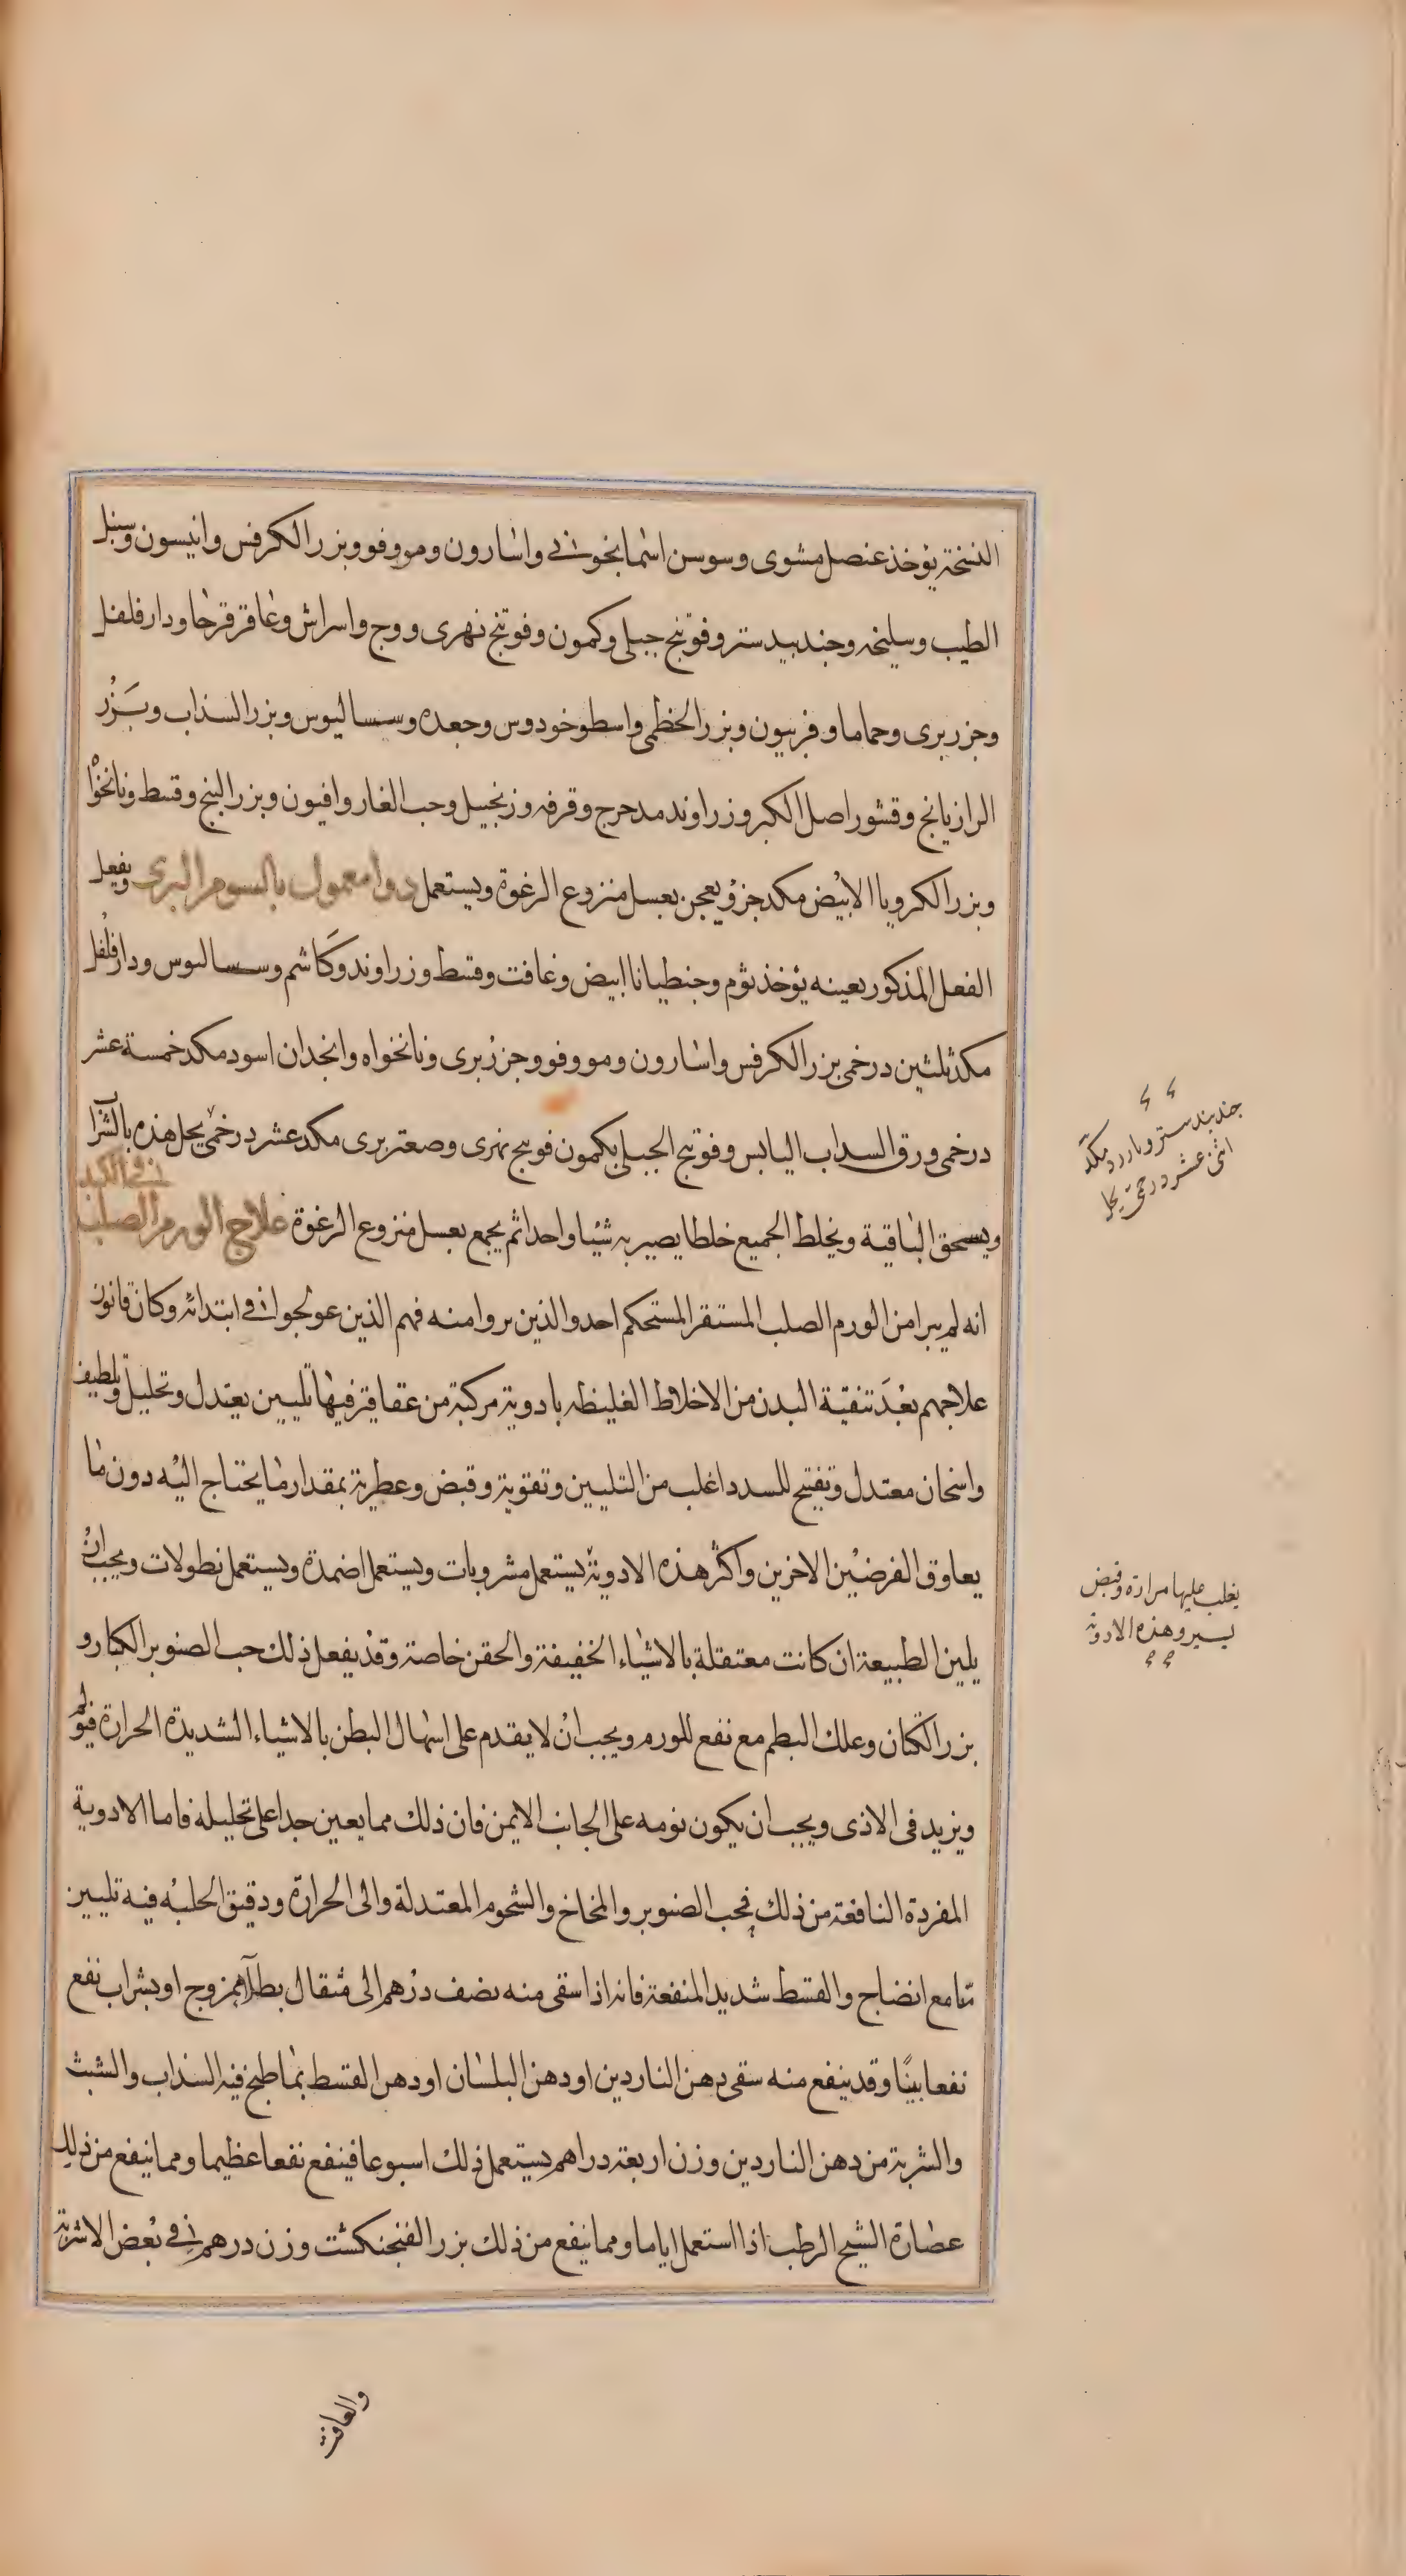 النسخة يؤخذ عنصل مشوى وسوسن اسمانجونى واسارون ومو وفو وبزر الكرفس وانيسون وسنبل
الطيب وسليخه وجندبيدستر وفوتنج جبلى وكمون وفوتنج نهرى ووج واسراش وعاقرقرحا ودارفلفل
وجزر برى وحماما وفربيون وبزر الخطمى واسطوخودوس وجعده وسساليوس وبزر السذاب وبَزر
الرازيانج وقشور اصل الكبر وزراوند مدحرج وقرفه وزنجبيل وحب الغار وافيون وبزر البنج وقسط ونانخوا
وبزر الكرويا الابيض مكد جزؤ يعجن بعسل منزوع الرغوة ويستعمل دوا معمول بالسوم البرى ويفعل
الفعل المذكور بعينه يؤخذ ثوم وجنطيانا ابيض وغافت وقسط وزراوند وكاشم وسساليوس ودارفلفل
مكد ثلثين درخمى بزر الكرفس واسارون ومو وفو وجزر برى ونانخواه وانجدان اسود مكد خمسة عشر
درخمى ورق السداب اليابس وفوتنج الجبلى بكمون فوتنج نهرى وصعتر برى مكد عشر درخمى يحل هذه بالشراب
ويسحق الباقية ويخلط الجميع خلطا يصير به شيئا واحدا ثم يجمع بعسل منزوع الرغوة علاج الورم الصلب
فى الكبد
انه لم يبرا من الورم الصلب المستقر المستحكم احد والذين بروا منه فهم الذين عولجوا فى ابتدائه وكان قانون
علاجهم بعْدَ تنقية البدن من الاخلاط الغليظه بادوية مركبة من عقاقير فيها تليين يعتدل وتحليل وتلطيف
واسخان معتدل وتفتيح للسدد اغلب من التليين وتقوية وقبض وعطرية بمقدار ما يحتاج اليه دون ما
يعاوق الغرضين الاخرين واكثر هذه الادوية يستعمل مشروبات ويستعمل اضمدة ويستعمل نطولات ويجب ان
يلين الطبيعة ان كانت معتقلة بالاشياء الخفيفة والحقن خاصة وقد يفعل ذلك حب الصنوبر الكبار و
بزر الكتان وعلك البطم مع نفع للورم ويجب ان لا يقدم على اسهال البطن بالاشياء الشديدة الحرارة فيولم
ويزيد فى الاذى ويجب ان يكون نومه على الجانب الايمن فان ذلك مما يعين جدا على تحليله فاما الادوية
المفردة النافعة من ذلك فحب الصنوبر والمخاخ والشحوم المعتدلة والى الحرارة ودقيق الحلبه فيه تليين
مّا مع انضاج والقسط شديد المنفعة فانه اذا سقى منه نصف درهم الى مثقال بطلا ممزوج او بشراب نفع
نفعا بينًا وقد ينفع منه سقى دهن الناردين او دهن البلسان او دهن القسط بما طبخ فيه السذاب والشبث
والشربة من دهن الناردين وزن اربعة دراهم يستعمل ذلك اسبوعا فينفع نفعا عظيما ومما ينفع من ذلك
عصارة الشيح الرطب اذا استعمل اياما ومما ينفع من ذلك بزر الفنجنكشت وزن درهم فى بعض الاشربة
جندبيدستر وبارزد مكد
اثنى عشر درخمى يحل
يغلب عليها مرارة وقبض
يسير وهذه الادوية
والغافت